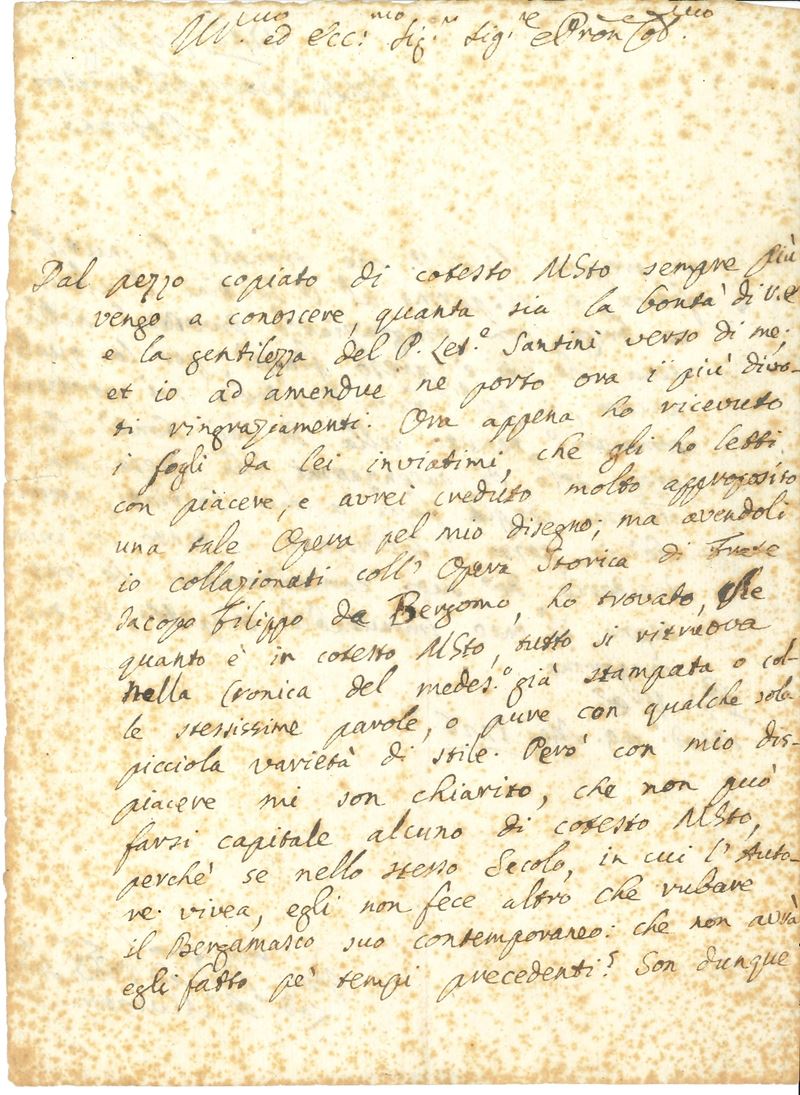 Ill.mo ed Ecc.mo Sig.r Sig.re e Pron Col.mo
Dal pezzo copiato di cotesto MSto sempre più
vengo a conoscere, quanta sia la bontà di V.E
e la gentilezza del P. Let.e Santini verso di me;
et io ad amendue ne porto ora i più divo-
ti ringraziamenti. Ora appena ho ricevuto
i fogli da lei inviatimi, che gli ho letti
con piacere, e avrei creduto molto approposito
una tale Opera pel mio disegno; ma avendoli
io collazionati coll' Opera Storica di Frate
Jacopo Filippo da Bergomo, ho trovato, che
quanto è in cotesto MSto, tutto si ritruova
nella Cronica del medes.o già stampata o col-
le stessissime parole, o pure con qualche sola
picciola varietà di stile. Però con mio dis-
piacere mi son chiarito, che non può
farsi capitale alcuno di cotesto MSto,
perchè se nello stesso Secolo, in cui l'Auto-
re vivea, egli non fece altro che rubare
il Bergamasco suo contemporaneo: che non avrà
egli fatto pe' tempi precedenti? Son dunque